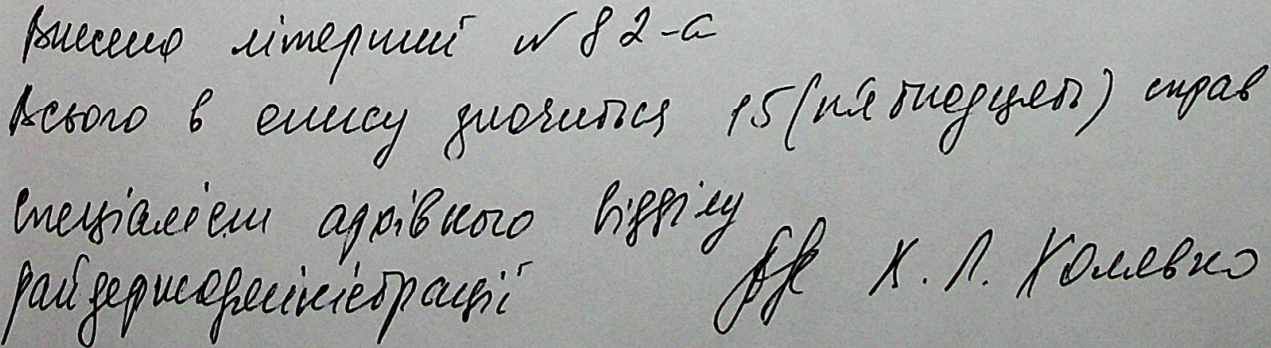 Внесено літерний № 82-а
Всього в опису значиться 15 (п'ятнадцять) справ
Спеціаліст архівного відділу
райдержадміністрації Х. Л. Холявко